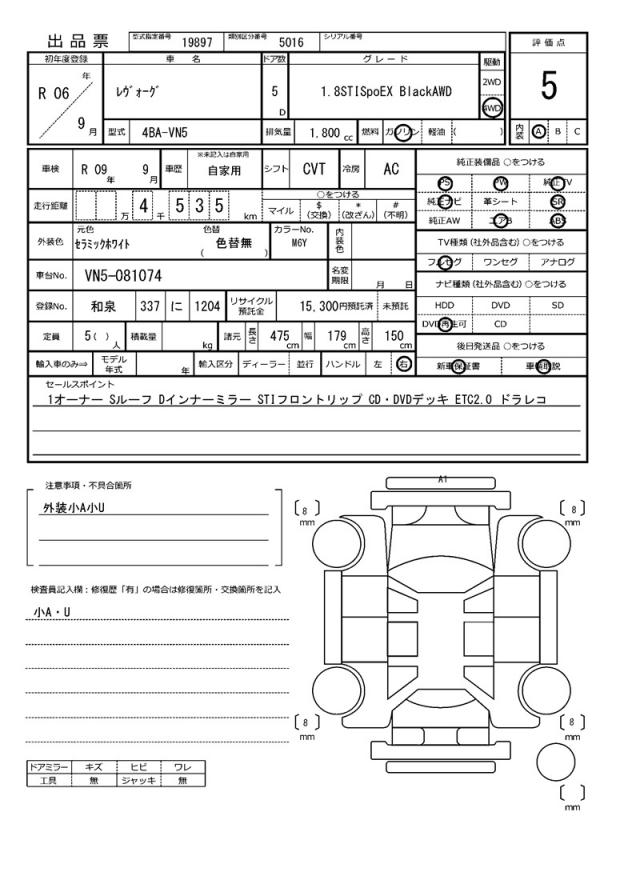 出品票
型式指定番号 19897 類別区分番号 5016 シリアル番号
初年度登録 車名 ドア数 グレード 駆動 評価点
R 06 年 9 月 ﾚｳﾞｫｰｸﾞ 5 D 1.8STISpoEX BlackAWD 2WD 4WD 5
型式 4BA-VN5 排気量 1.800 cc 燃料 ガソリン 軽油 ( ) 内装 A B C
車検 R 09 年 9 月 車歴 ※未記入は自家用 自家用 シフト CVT 冷房 AC
走行距離 万 4 千 5 3 5 km ○をつける マイル $ (交換) * (改ざん) # (不明)
外装色 元色 ｾﾗﾐｯｸﾎﾜｲﾄ 色替 ( 色替無 ) カラーNo. M6Y 内装色
車台No. VN5-081074 名変期限 月 日
登録No. 和泉 337 に 1204 リサイクル預託金 15,300円預託済 未預託
定員 5( ) 人 積載量 kg 諸元 長さ 475 cm 幅 179 cm 高さ 150 cm
輸入車のみ⇒ モデル年式 年 輸入区分 ディーラー 並行 ハンドル 左 右
純正装備品 ○をつける
PS PW 純正TV
純正ナビ 革シート SR
純正AW エアB ABS
TV種類 (社外品含む) ○をつける
フルセグ ワンセグ アナログ
ナビ種類 (社外品含む) ○をつける
HDD DVD SD
DVD再生可 CD
後日発送品 ○をつける
新車保証書 車輌取説
セールスポイント
1オーナー Sルーフ Dインナーミラー STIフロントリップ CD・DVDデッキ ETC2.0 ドラレコ
注意事項・不具合箇所
外装小A小U
検査員記入欄：修復歴「有」の場合は修復箇所・交換箇所を記入
小A・U
ドアミラー キズ ヒビ ワレ
工具 無 ジャッキ 無
A1
8 mm
8 mm
8 mm
8 mm
mm